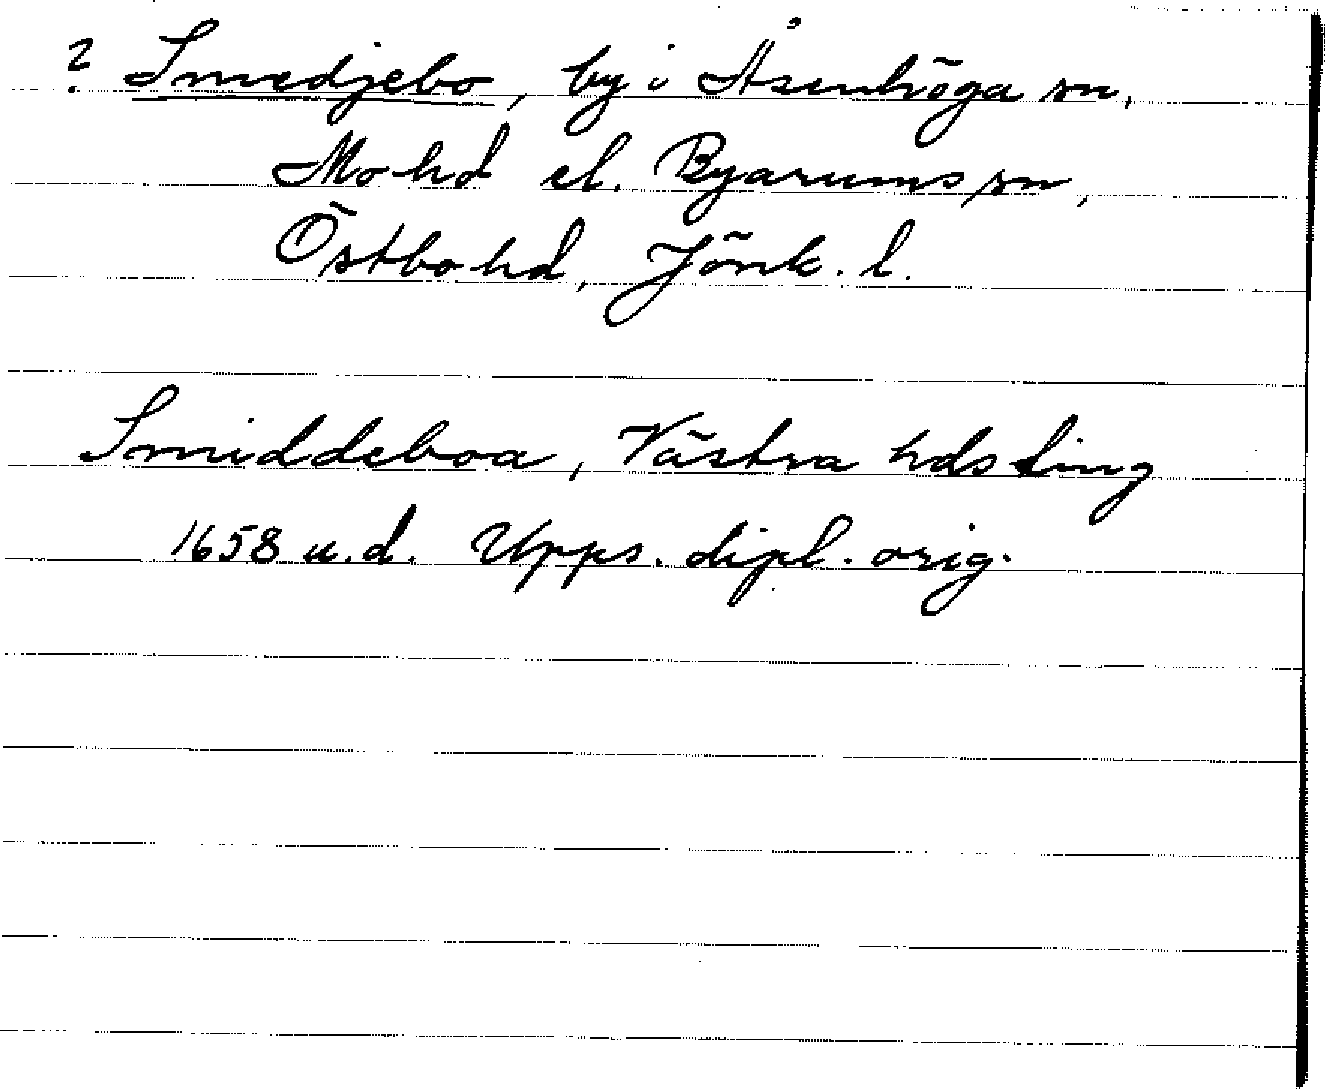 ? Smedjebo, by i Åsenhöga sn,
Mo hd el. Byarums sn,
Östbo hd, Jönk. l.
Smiddeboa, Västra hds ting
1658 u.d. Upps. dipl. orig.